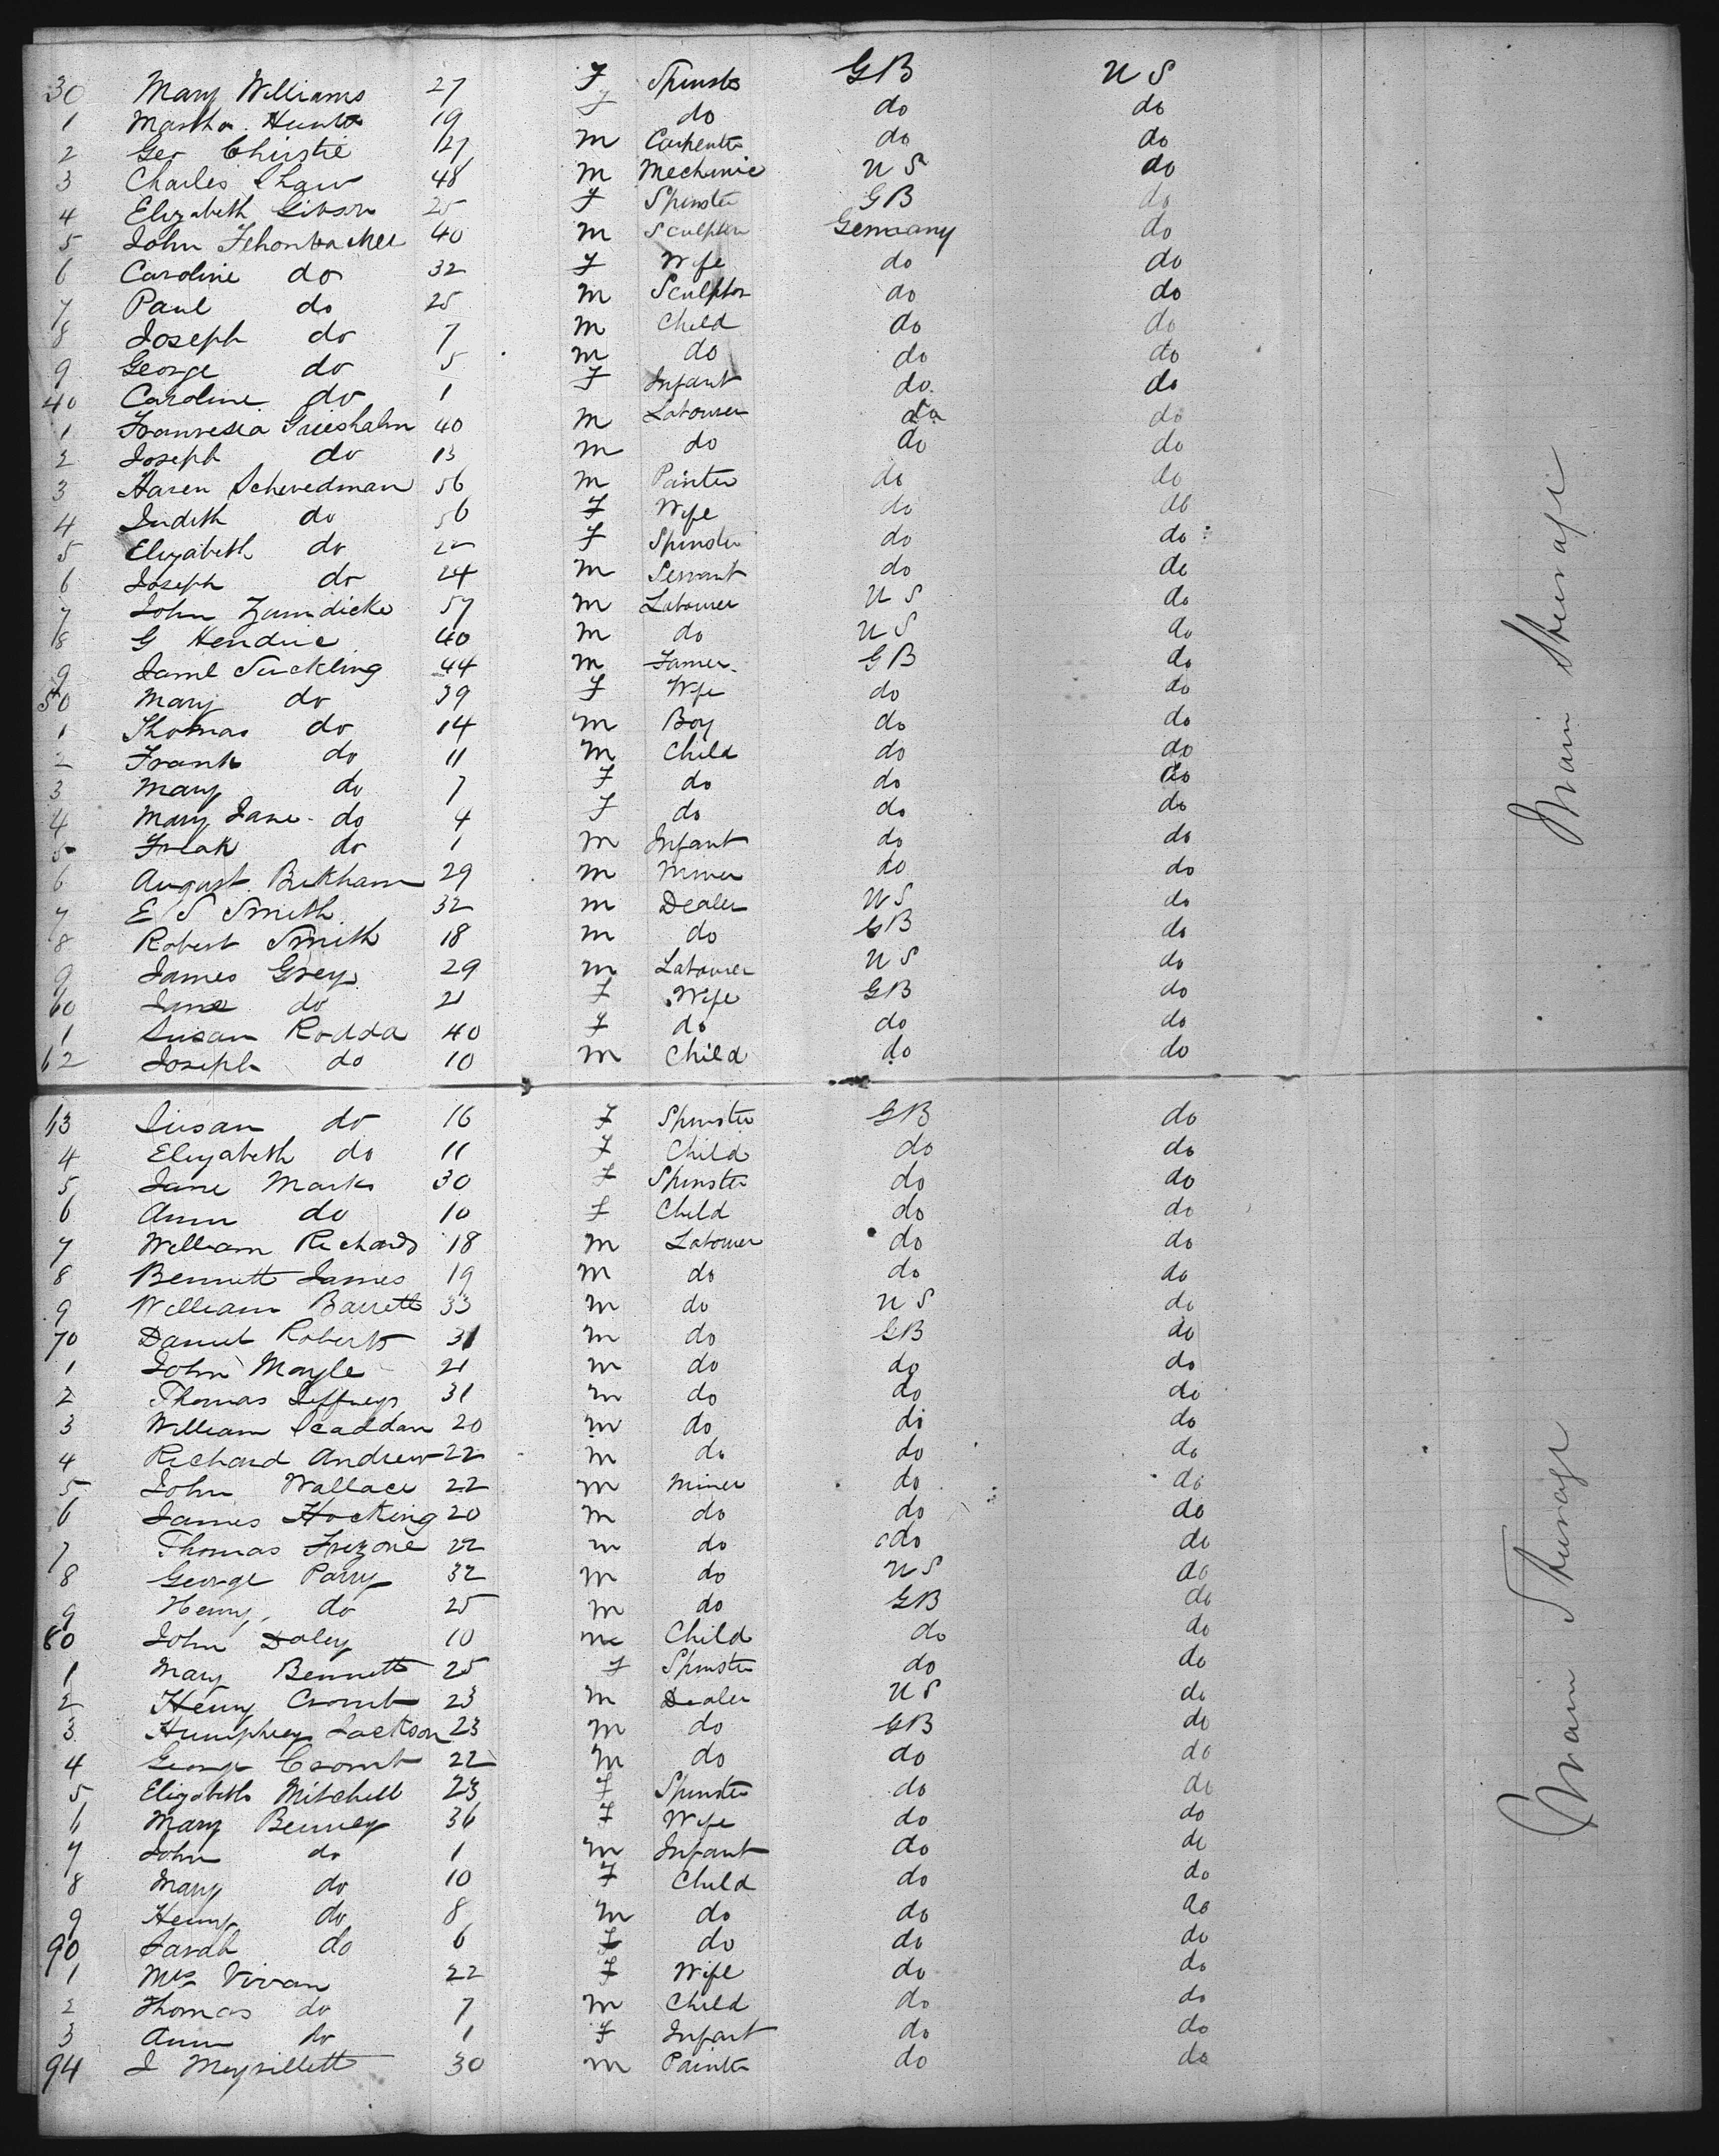 30 Mary Williams 27 F Spinster GB US
1 Martha Hunter 19 F do do do
2 Geo Christie 27 m Carpenter do do
3 Charles Shaw 48 m Mechanic US do
4 Elizabeth Gibson 25 F Spinster GB do
5 John 40 m Sculptor Germany do
6 Caroline do 32 F Wife do do
7 Paul do 25 m Sculptor do do
8 Joseph do 7 m Child do do
9 George do 5 m do do do
40 Caroline do 1 F Infant do do
1 40 m Labourer do do
2 Joseph do 13 m do do do
3 Haren Schevedman 56 m Painter do do
4 Judith do 56 F Wife do do
5 Elizabeth do 22 F Spinster do do
6 Joseph do 24 m Servant do do
7 John Zamdicke 57 m Labourer US do
8 G Hendrie 40 m do US do
9 Saml Suckling 44 m Famer GB do
50 Mary do 39 F Wife do do
1 Thomas do 14 m Boy do do
2 Frank do 11 m Child do do
3 Mary do 7 F do do do
4 Mary Jane do 4 F do do do
5 do 1 m Infant do do
6 August Bekham 29 m Miner do do
7 E S Smith 32 m Dealer US do
8 Robert Smith 18 m do GB do
9 James Grey 29 m Labourer US do
60 Jane do 21 F Wife GB do
1 Susan Rodda 40 F do do do
62 Joseph do 10 m Child do do
63 Susan do 16 F Spinster GB do
4 Elizabeth do 11 F Child do do
5 Jane Marks 30 F Spinster do do
6 Ann do 10 F Child do do
7 William Richards 18 m Labourer do do
8 Bennett James 19 m do do do
9 William Barrett 33 m do US do
70 Daniel Roberts 31 m do GB do
1 John Mayle 21 m do do do
2 Thomas Jeffreys 31 m do do do
3 William Scaddan 20 m do do do
4 Richard Andrew 22 m do do do
5 John Wallace 22 m Miner do do
6 James Hocking 20 m do do do
7 Thomas Frezone 22 m do do do
8 George Parry 32 m do US do
9 Henry do 25 m do GB do
80 John Daley 10 m Child do do
1 Mary Bennett 25 F Spinster do do
2 Henry Cromb 23 m Dealer US do
3 Humphrey Jackson 23 m do GB do
4 George Cromb 22 m do do do
5 Elizabeth Mitchell 23 F Spinster do do
6 Mary Benney 36 F Wife do do
7 John do 1 m Infant do do
8 Mary do 10 F Child do do
9 Henry do 8 m do do do
90 Sarah do 6 F do do do
1 Mrs Vivan 22 F Wife do do
2 Thomas do 7 m Child do do
3 Ann do 1 F Infant do do
94 J 30 m Painter do do
Main Steerage
Main Steerage